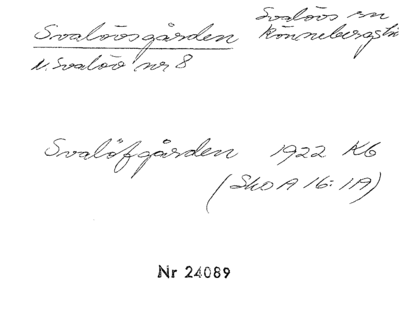 Svalövsgården Svalövs sn
u. Svalöv nr 8 Rönnebergs
Svalöfgården 1922 K6
(SkO A 16:1A)
Nr 24089